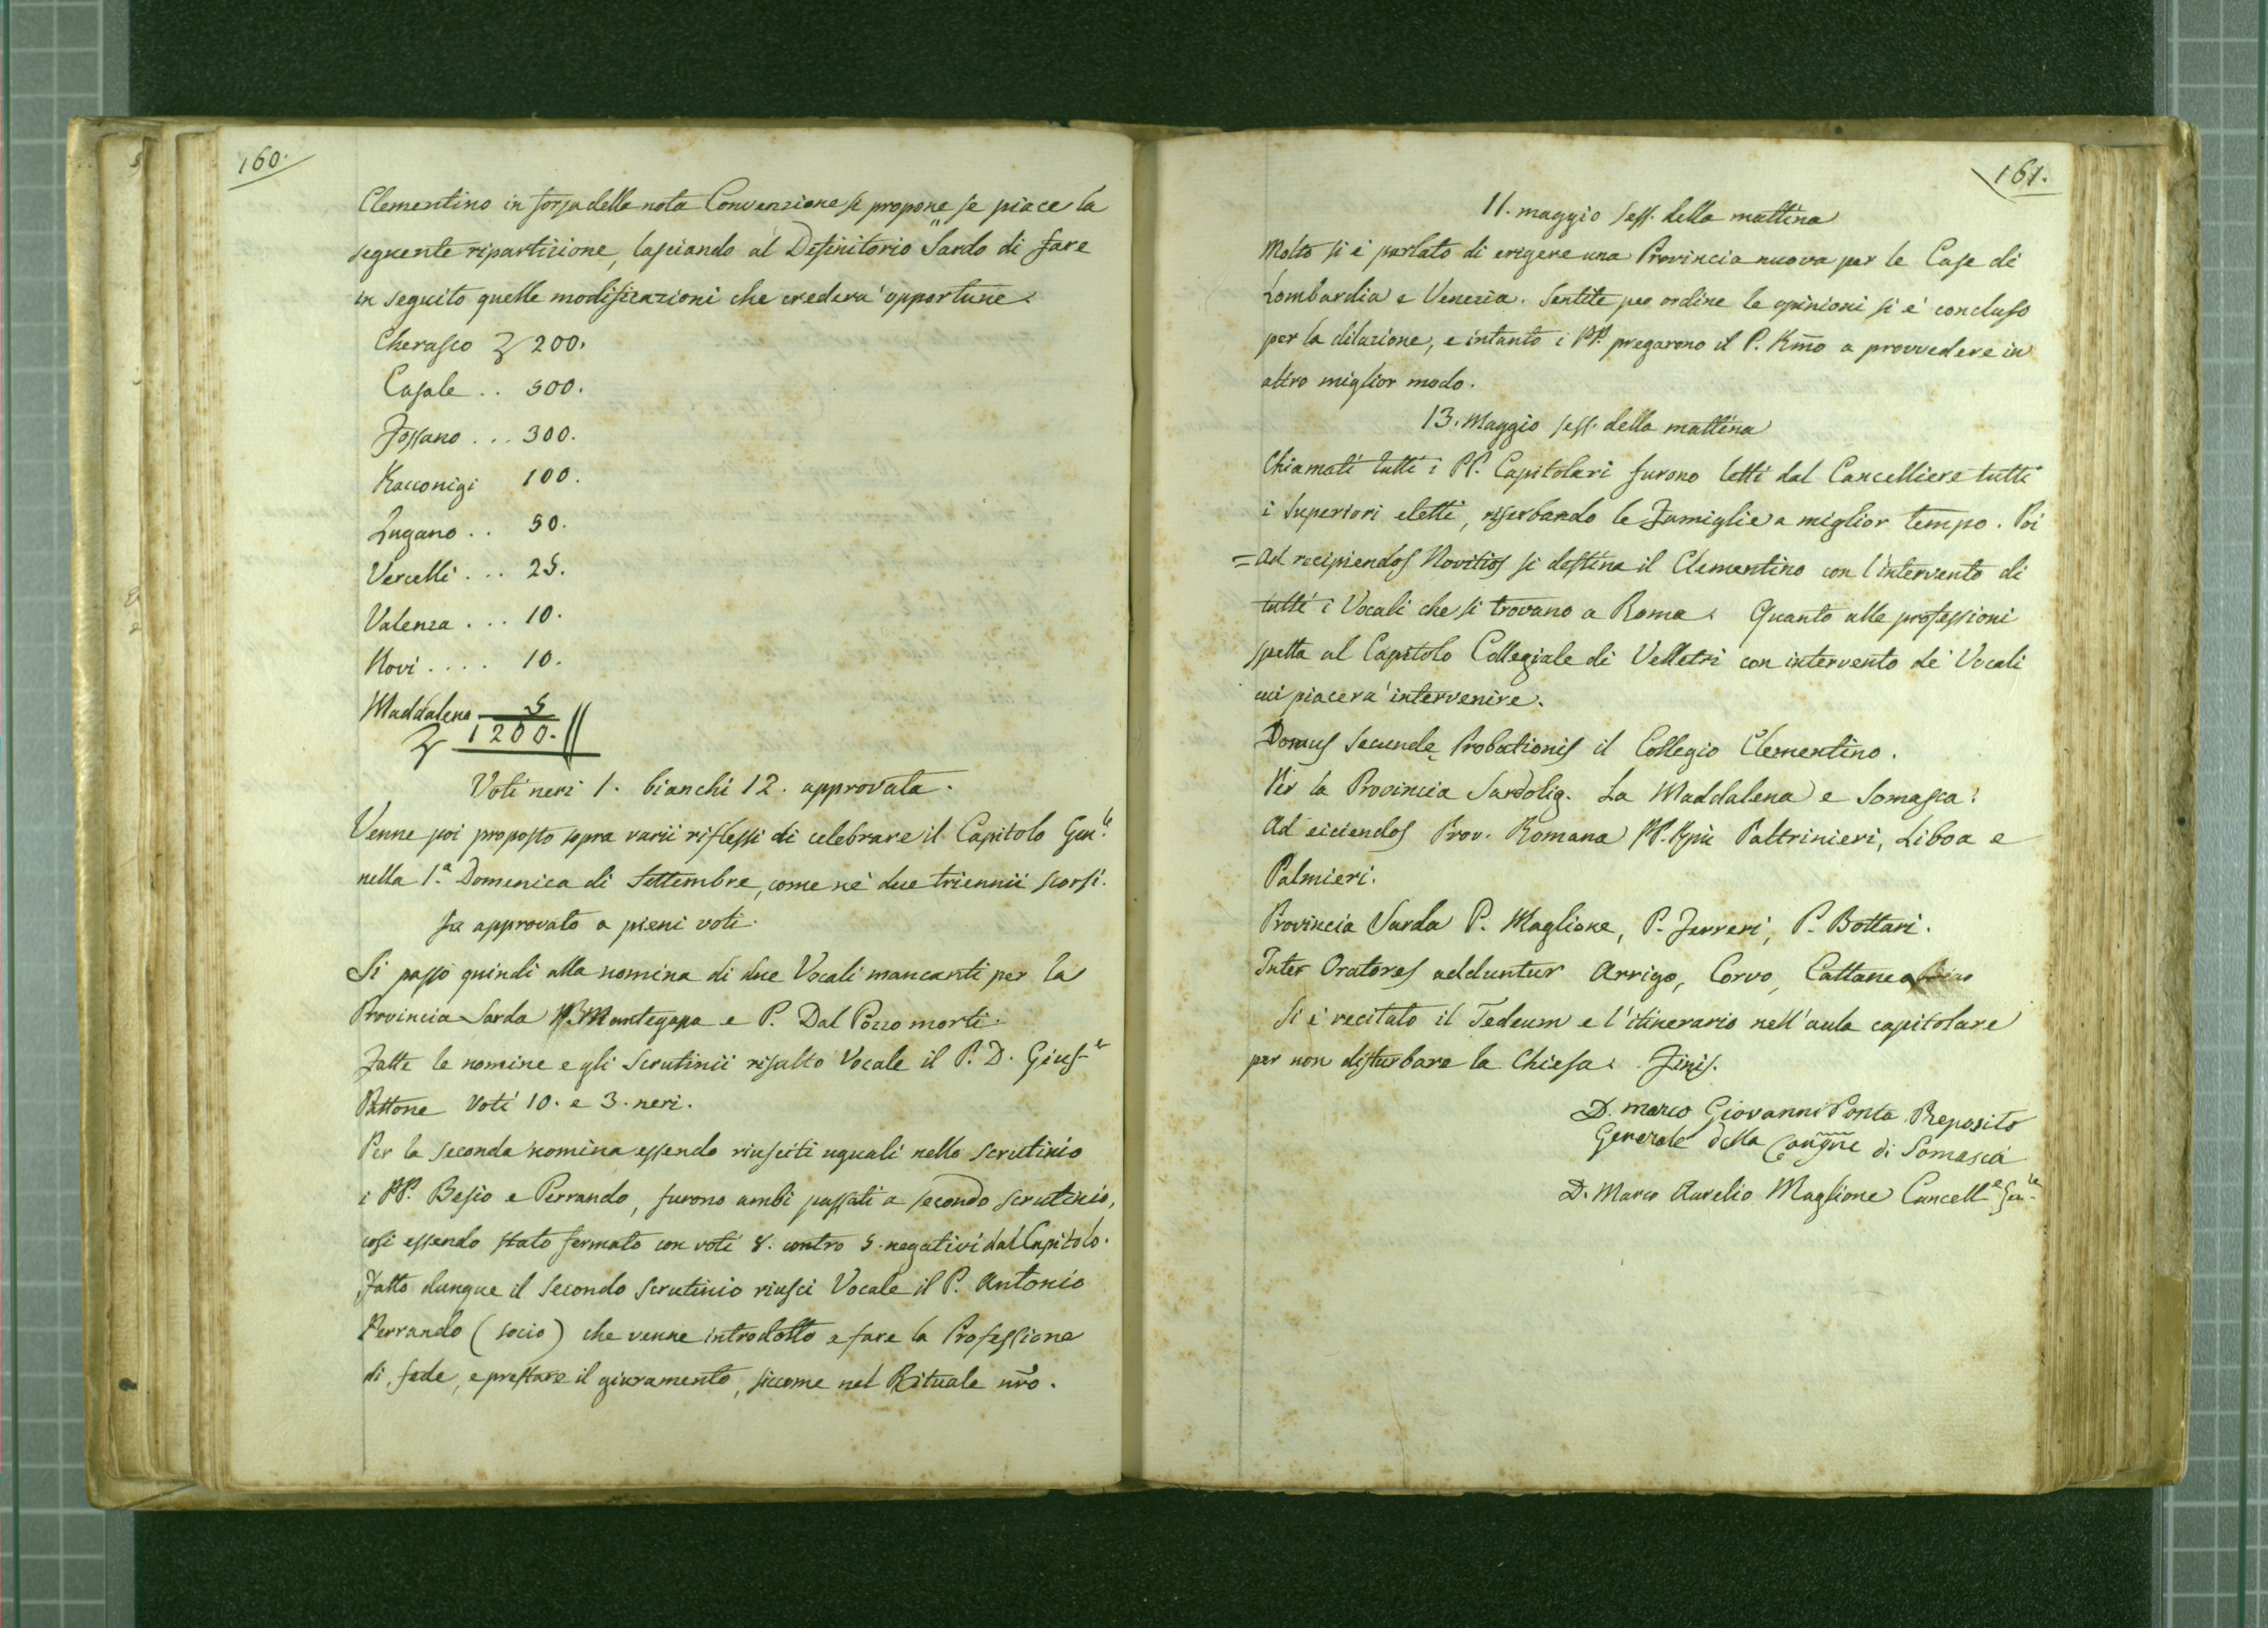 160.
Clementino in forza della nota Convenzione si propone se piace la
seguente ripartizione, lasciando al Definitorio Sardo di fare
in seguito quelle modificazioni che crederà opportune.
Cherasco 200.
Casale .. 500.
Fossano ... 300.
Racconigi 100.
Lugano .. 50.
Vercelli ... 25.
Valenza ... 10.
Novi .... 10.
Maddalena 5
1200.
Voti neri 1. bianchi 12. approvata.
Venne poi proposto sopra varii riflessi di celebrare il Capitolo Gen.le
nella 1.a Domenica di Settembre, come nè due triennii scorsi.
fu approvato a pieni voti.
Si passò quindi alla nomina di due Vocali mancanti per la
Provincia Sarda PP. Mantegazza e P. Dal Pozzo morti.
Fatte le nomine e gli Scrutinii risultò Vocale il P. D. Gius-e
Pattone Voti 10. e 3. neri.
Per la seconda nomina essendo riusciti uguali nello scrutinio
i PP. Besio e Perrando, furono ambi passati a secondo scrutinio,
così essendo stato fermato con voti 8. contro 5. negativi dal Capitolo.
Fatto dunque il secondo scrutinio riuscì Vocale il P. Antonio
Perrando (socio) che venne introdotto a fare la Professione
di fede, e prestare il giuramento, siccome nel Rituale nrō.
161.
11. maggio sess. della mattina
Molto si è parlato di erigere una Provincia nuova per le Case di
Lombardia e Venezia. Sentite per ordine le opinioni si è concluso
per la dilazione, e intanto i PP. pregarono il P. Rm̄o a provvedere in
altro miglior modo.
13. Maggio sess. della mattina
Chiamati tutti i PP. Capitolari furono letti dal Cancelliere tutti
i Superiori eletti, riserbando le Famiglie a miglior tempo. Poi
= Ad recipiendos Novitios si destina il Clementino con l'intervento di
tutti i Vocali che si trovano a Roma. Quanto alle professioni
spetta al Capitolo Collegiale di Velletri con intervento de' Vocali
cui piacerà intervenire.
Domus Secundę Probationis il Collegio Clementino.
Per la Provincia Sardolig. La Maddalena e Somasca.
Ad eiciendos Prov. Romana PP. Rm̄i Paltrinieri, Liboa e
Palmieri.
Provincia Sarda P. Maglione, P. Ferreri, P. Bottari.
Inter Oratores adduntur Arrigo, Corvo, Cattaneo
Si è recitato il Tedeum e l'itinerario nell'aula capitolare
per non disturbare la Chiesa. Finis.
D. Marco Giovanni Ponta Preposito
Generale della Congñe di Somasca
D. Marco Aurelio Maglione Cancell.e Gen.le